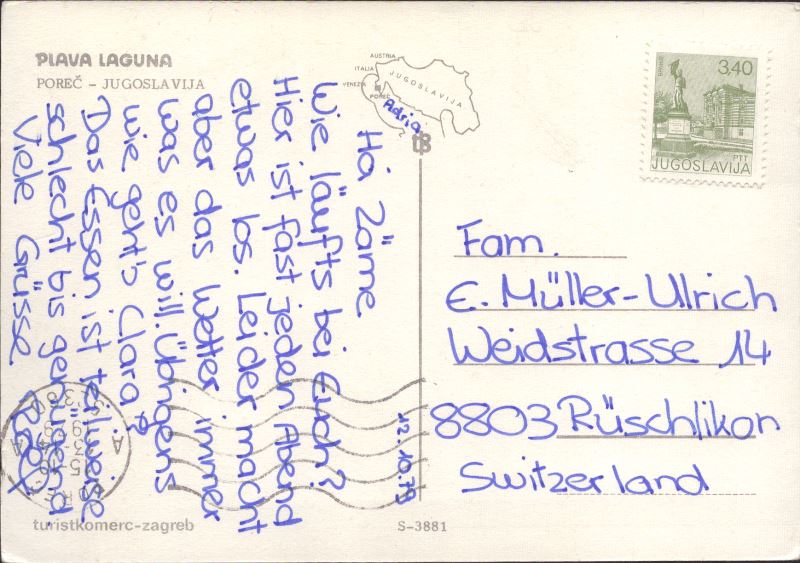 PLAVA LAGUNA
POREČ – JUGOSLAVIJA
AUSTRIA
ITALIA
VENEZIA
POREČ
JUGOSLAVIJA
Adria
3,40
PTT
JUGOSLAVIJA
12.10.79
Hoi Zäme
Wie läufts bei Euch?
Hier ist fast jeden Abend
etwas los. Leider macht
aber das Wetter immer
was es will. Übrigens
wie geht's Clara?
Das Essen ist teilweise
schlecht bis genügend
Viele Grüsse
Fam.
E. Müller-Ulrich
Weidstrasse 14
8803 Rüschlikon
Switzerland
turistkomerc-zagreb
S-3881